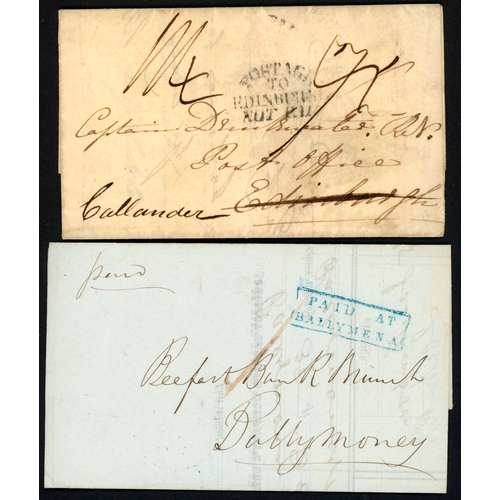 POSTAGE
TO
EDINBURGH
NOT PAID
Captain Drinkwater R.N.
Post Office
Callander Edinburgh
paid
PAID AT
BALLYMENA
Belfast Bank Branch
Ballymoney